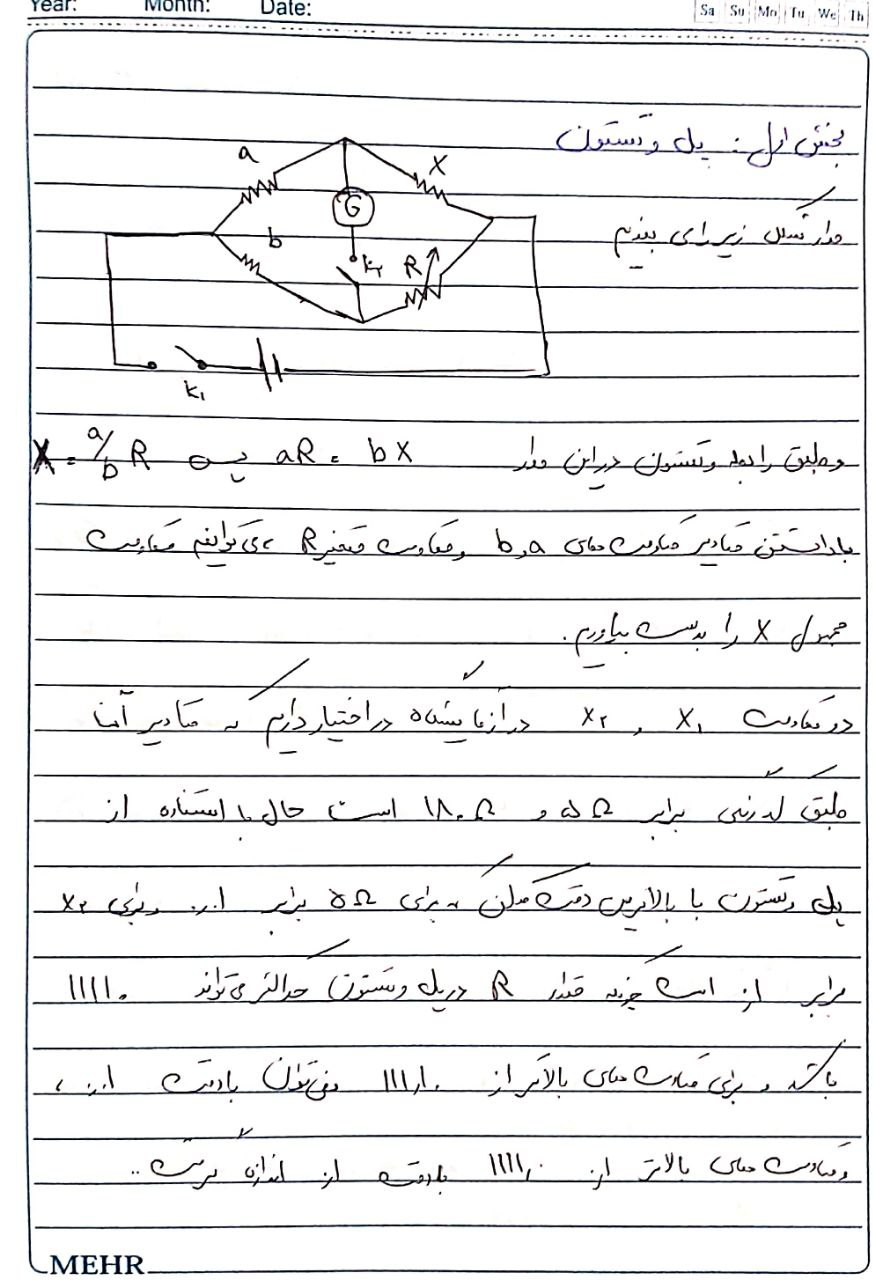 Year: Month: Date:
Sa Su Mo Tu We Th
بخش اول : پل وتستون
مدار شکل زیر را می بندیم
a X
G
b k۲ R
k۱
و طبق رابطه وتستون در این مدار aR = bX پس X = a/b R
با داشتن مقادیر مقاومت های a و b و مقاومت متغیر R ، می توانیم مقاومت
مجهول X را بدست بیاوریم.
دو مقاومت X۱ و X۲ در آزمایشگاه در اختیار داریم که مقادیر آنها
طبق کد رنگی برابر ۵Ω و ۱۸۰Ω است حال با استفاده از
پل وتستون با بالاترین دقت ممکن برای ۵Ω برابر ۰.۰۱ و برای X۲
برابر ۰.۱ است چونکه مقدار R در پل وتستون حداکثر می تواند ۱۱۱۱۰
باشد و برای مقاومت های بالاتر از ۱۱۱.۱۰ نمی توان با دقت ۰.۰۱ ،
و مقاومت های بالاتر از ۱۱۱۱.۰ با دقت ۰.۱ اندازه گرفت ..
MEHR